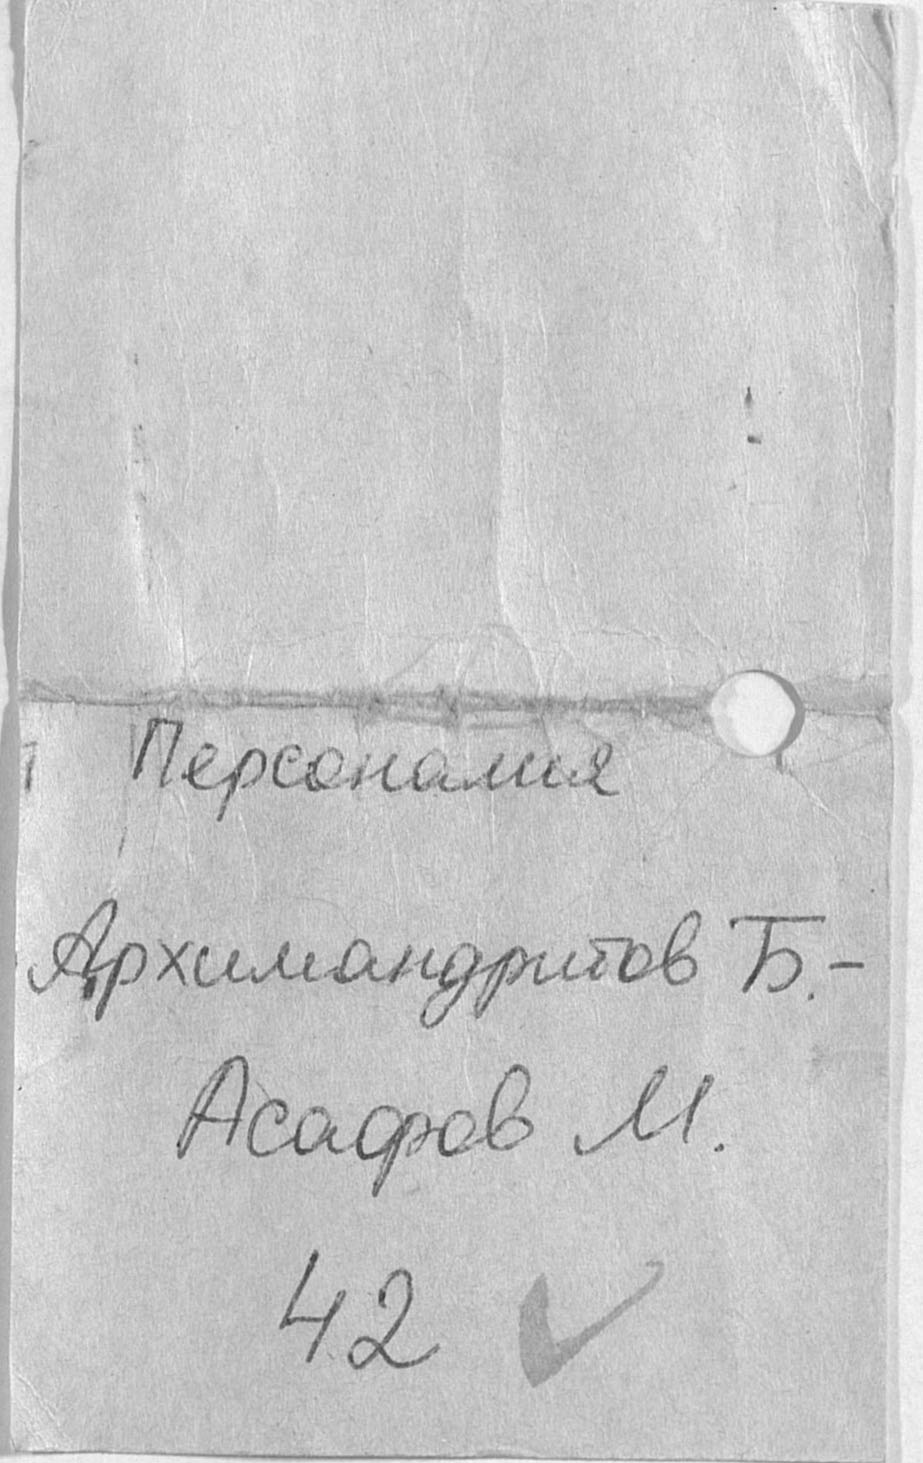 Персоналия
Архимандритов Б.-
Асафов М.
42 ✓